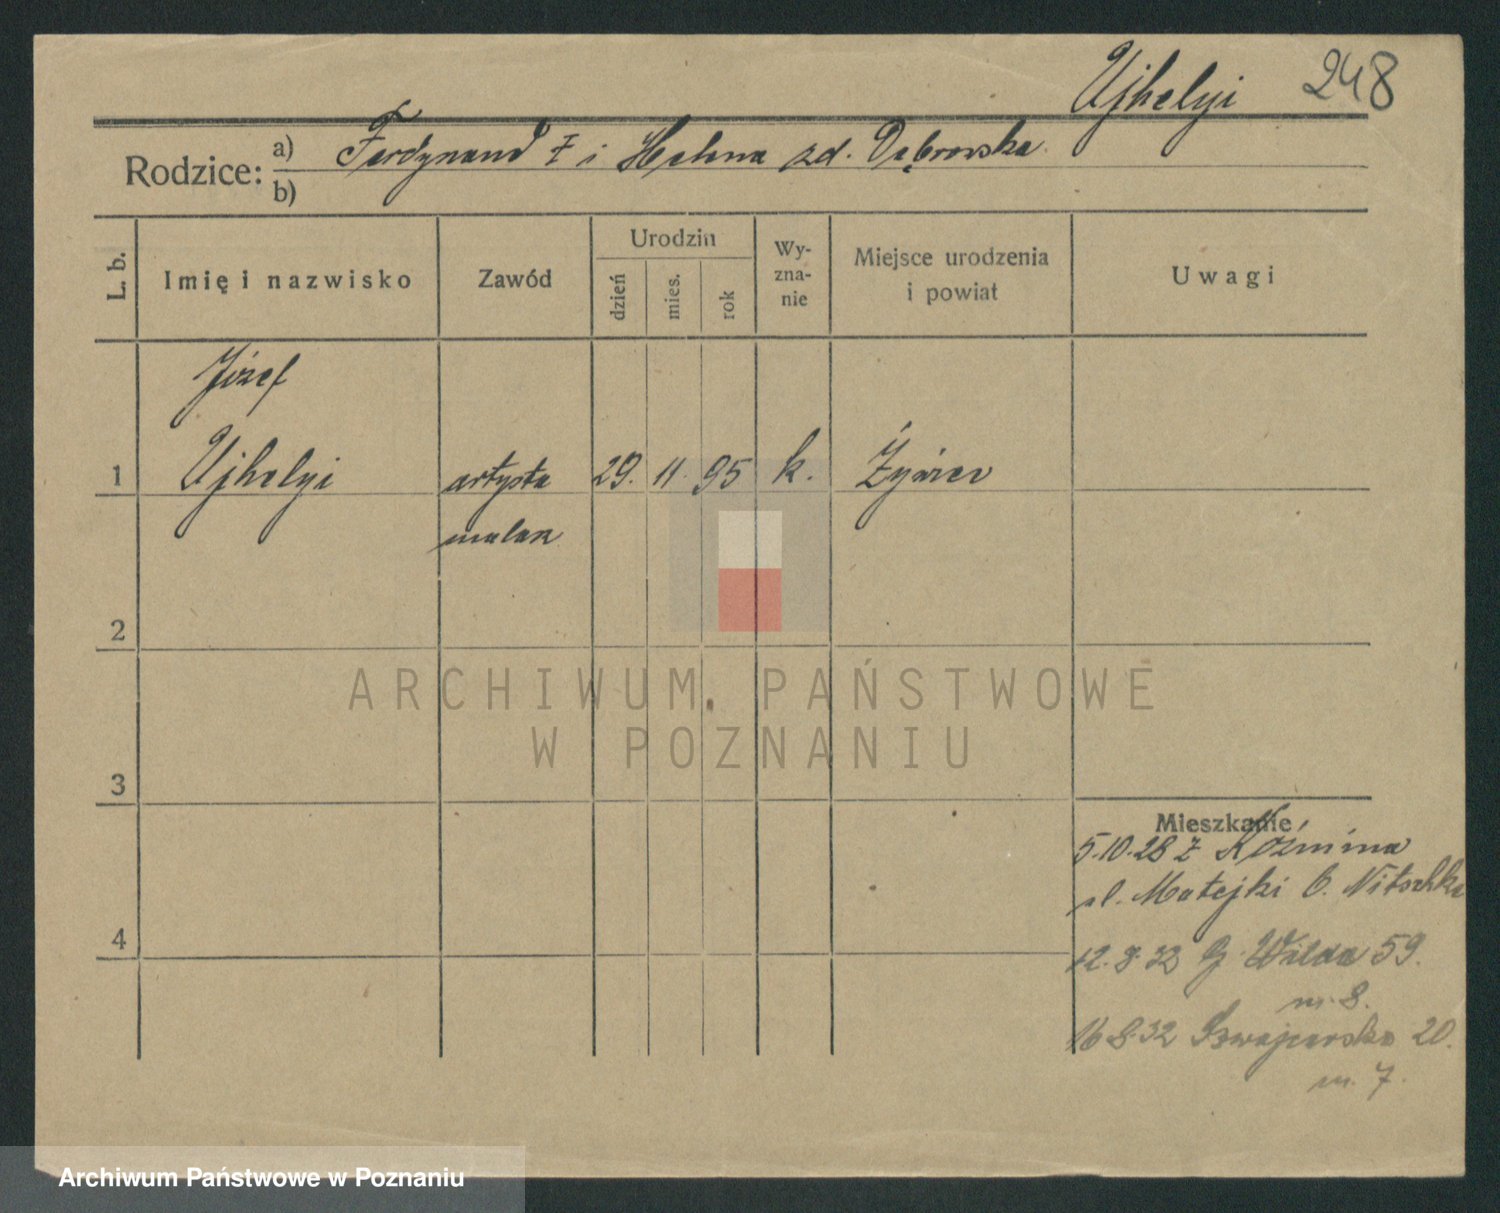 Ujhelyi 248
Rodzice: a) Ferdynand ł i Helena zd. Dąbrowska
b)
L. b. Imię i nazwisko Zawód Urodzin dzień mies. rok Wy-zna-nie Miejsce urodzenia i powiat Uwagi
Józef
1 Ujhelyi artysta 29. 11. 95 k.
malarz
2
ARCHIWUM PAŃSTWOWE
W POZNANIU
3
Mieszkanie
5.10.28 z Koźmina
ul. Matejki 6. Nitschke
12.8.32 G. Wilda 59.
m. 8.
16.8.32 Szwajcarska 20.
m. 7.
4
Archiwum Państwowe w Poznaniu